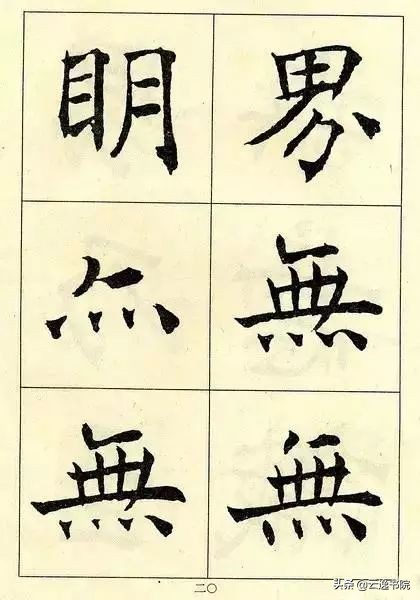 界無無
明亦無
二〇
头条 @云逸书院